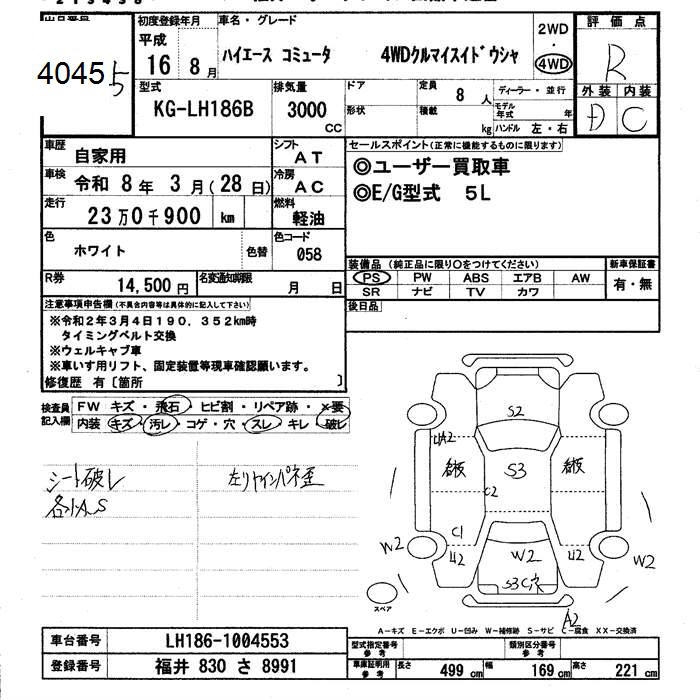 初度登録年月
車名・グレード
2WD
・
4WD
評価点
平成
16 8 月
ハイエース コミュータ 4WDクルマイスイドウシャ
R
40455
型式
KG-LH186B
排気量
3000
CC
ドア
形状
定員
8 人
積載
kg
ディーラー・並行
モデル年式 年
ハンドル 左・右
外装 内装
D C
車歴
自家用
シフト
AT
車検
令和 8 年 3 月(28 日)
冷房
AC
走行
23万0千900 km
燃料
軽油
色
ホワイト
色替
色コード
058
R券
14,500 円
名変通知期限
月 日
セールスポイント(正常に機能するものに限ります)
◎ユーザー買取車
◎E/G型式 5L
装備品 (純正品に限り○をつけてください)
新車保証書
PS PW ABS エアB AW
有・無
SR ナビ TV カワ
後日品
注意事項申告欄(不具合内容等は具体的に記入して下さい)
※令和2年3月4日190,352km時
タイミングベルト交換
※ウェルキャブ車
※車いす用リフト、固定装置等現車確認願います。
修復歴 有〔箇所 〕
検査員記入欄
FW キズ・飛石・ヒビ割・リペア跡・×要
内装 キズ・汚レ・コゲ・穴・スレ・キレ・破レ
シート破レ
各所A.S
左リヤインパネ歪
S2
UA2
各板
S3
各板
C2
C1
W2
U2
W2
U2
W2
S3C穴
A2
スペア
A−キズ E−エクボ U−凹み W−補修跡 S−サビ C−腐食 XX−交換済
車台番号
LH186-1004553
型式指定番号
参考
類別区分番号
参考
登録番号
福井 830 さ 8991
車庫証明用
参考
長さ 499 cm
幅 169 cm
高さ 221 cm